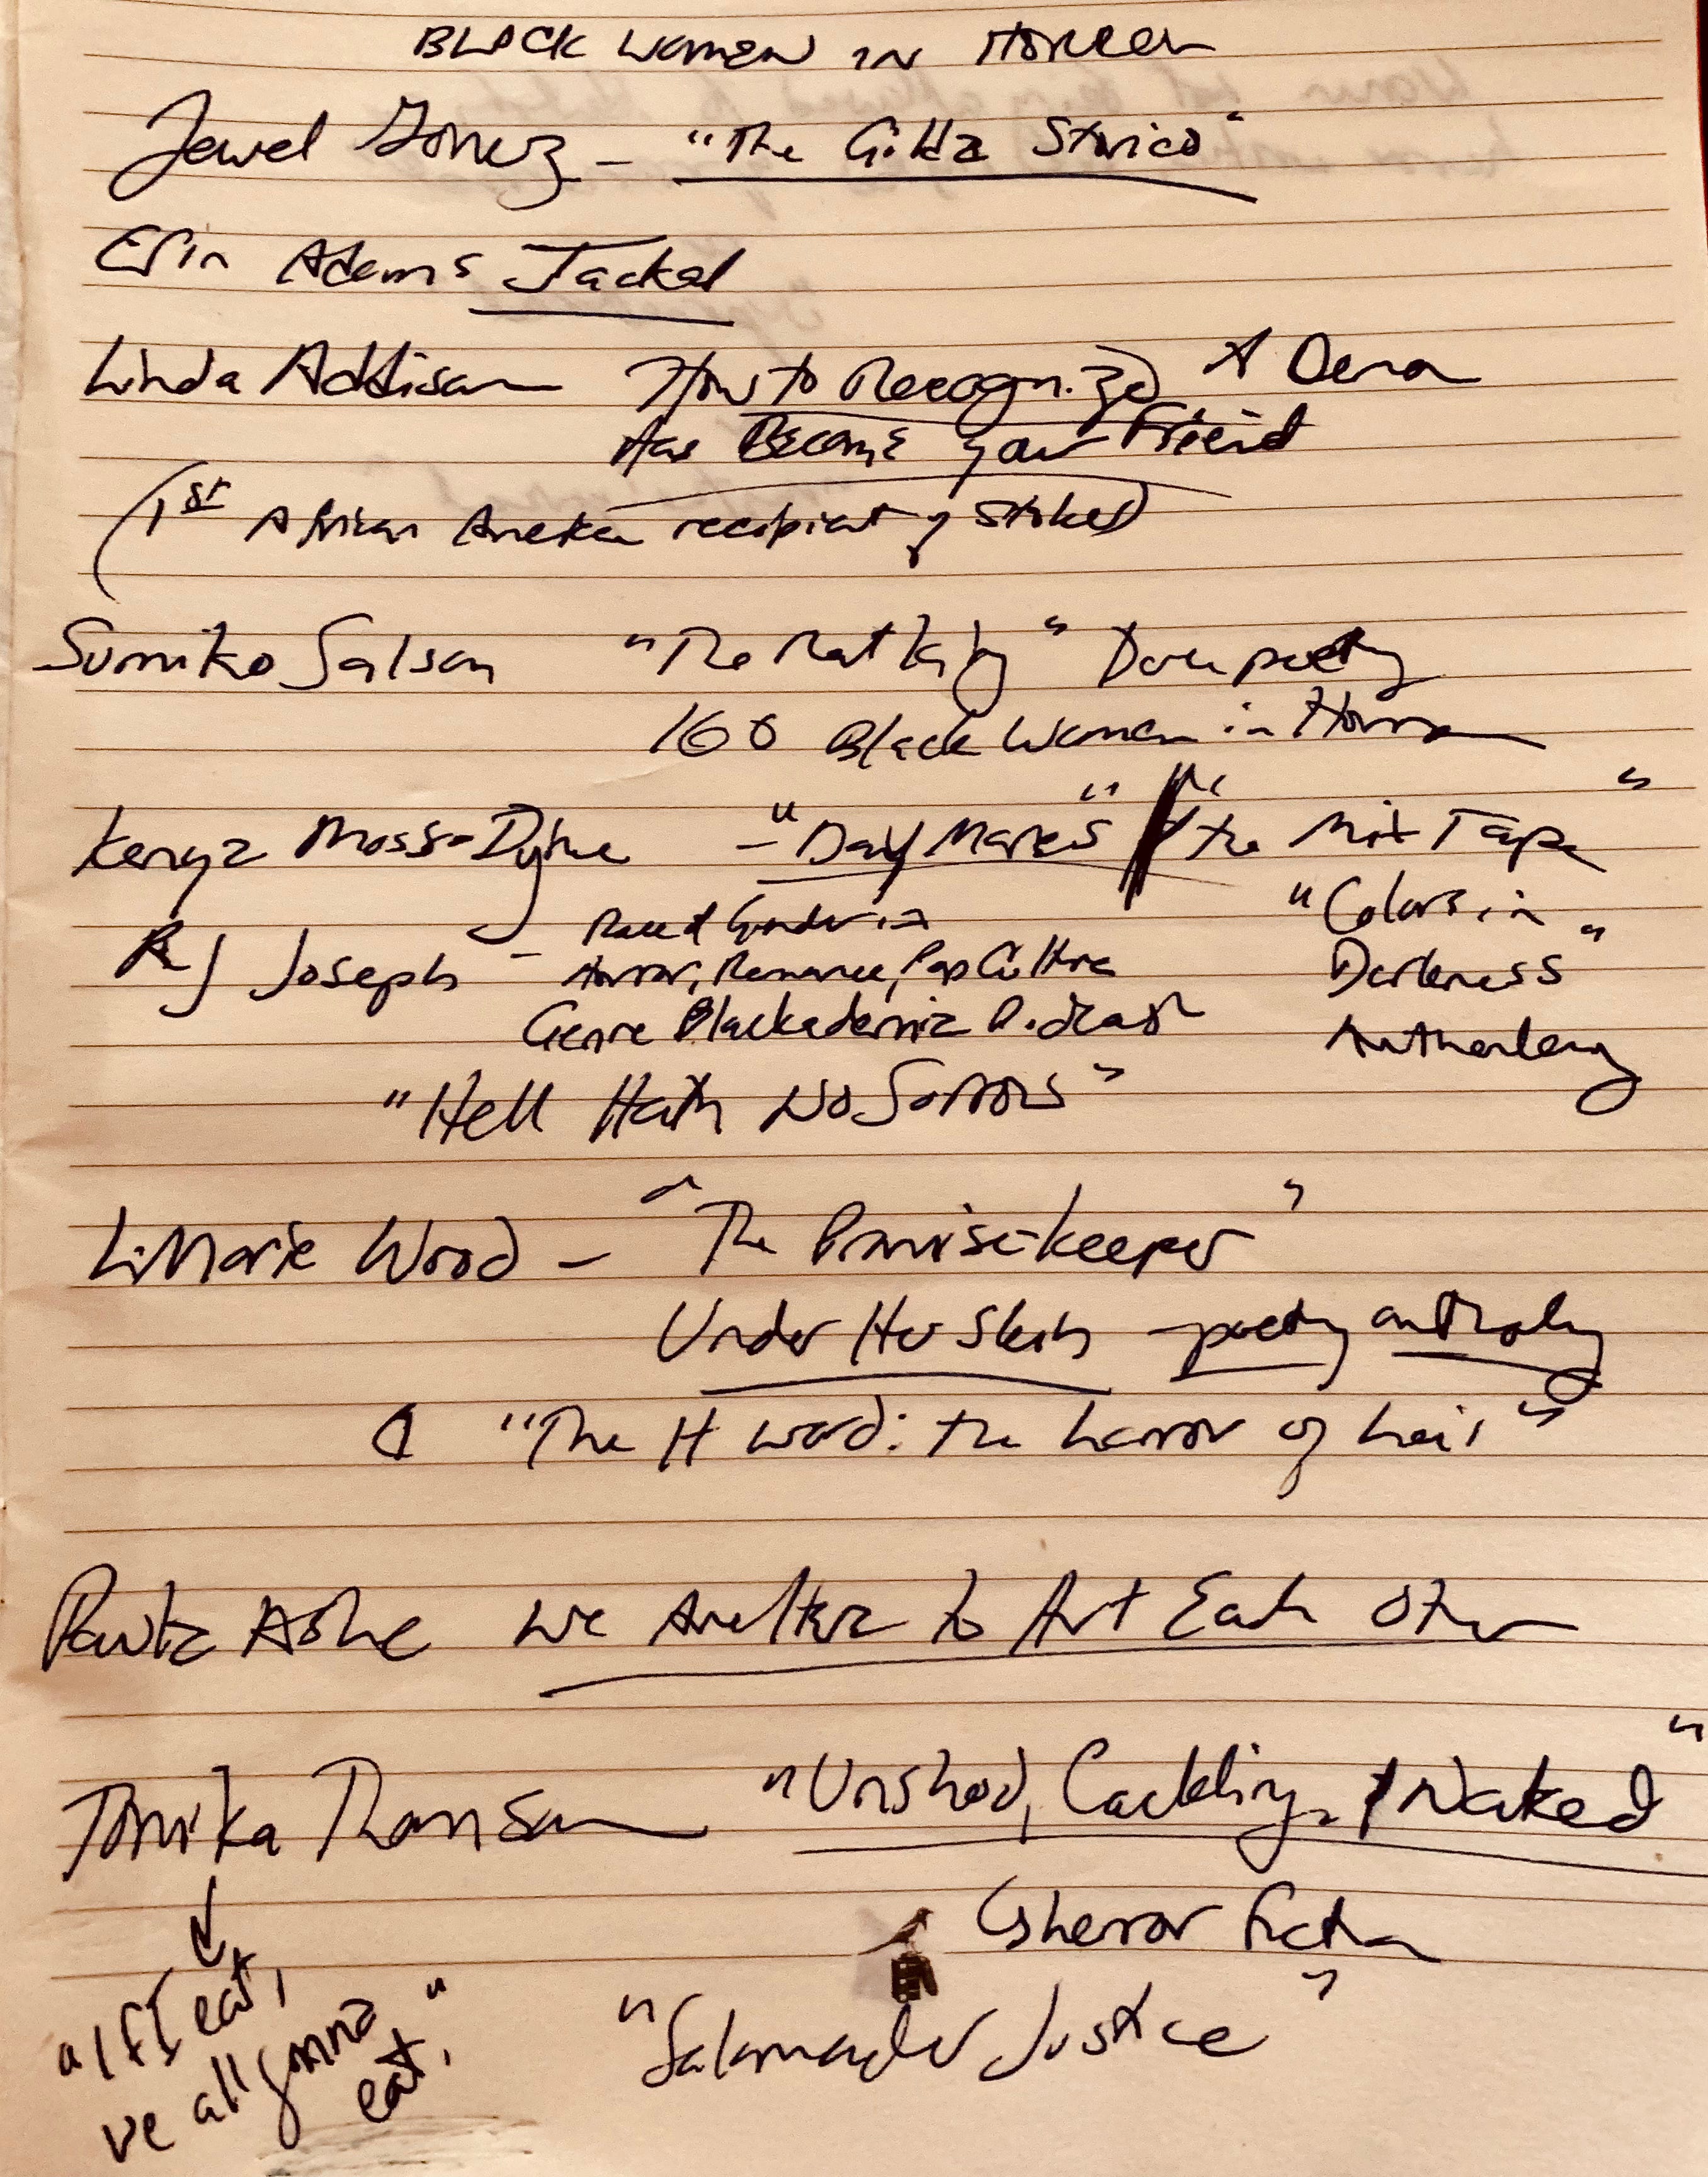 BLACK WOMEN IN HORROR
Jewel Gomez - "The Gilda Stories"
Erin Adams Jackal
Linda Addison How to Recognize A Demon
Has Become your Friend
(1st African American recipient of Stoker)
Sumiko Salson "The Rat King" Dark poetry
160 Black Women in Horror
Kenya Moss-Dyme - "DayMares" "the Mix Tape"
"Colors in
Darkness"
Anthology
RJ Joseph - Race & Gender in
Horror, Romance, Pop Culture
Genre Blackademic Podcast
"Hell Hath No Sorrow"
L. Marie Wood - "The Promise-keeper"
Under Her Skin - poetry anthology
"The H word: the horror of hair"
Paula Ashe We Are Here to Hurt Each Other
Tonika Thompson "Unshod, Cackling, & Naked"
Gsherror Fiction
"If I eat,
we all gonna
eat."
"Salamander Justice"